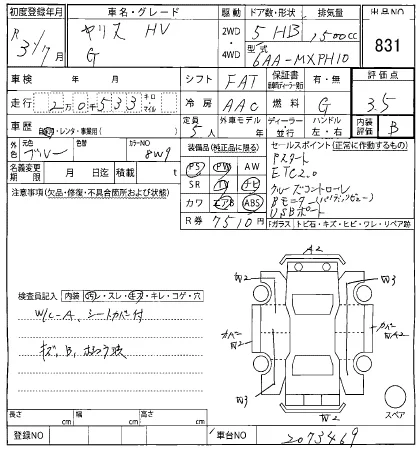 初度登録年月
車名・グレード
駆動
ドア数・形状
排気量
出品NO
R 3年 7月
ヤリス HV
G
2WD
・
4WD
5 HB
1,500cc
型式
6AA-MXPH10
831
車検
年 月
シフト
FAT
保証書
有・無
評価点
走行
2万0千533
キロ
・
マイル
冷房
AAC
燃料
G
3.5
車歴
自家用・レンタ・事業用( )
定員
5人
外車モデル
年
ディーラー
・
並行
ハンドル
左・右
内装評価
B
外色
元色
ブルー
カラーNO
8W9
装備品(純正品に限る)
セールスポイント(正常に作動するもの)
名義変更期限
月 日迄
積載
t
PS PW AW
SR TV ナビ
カワ エアB ABS
R券 7510円
Pスタート
ETC2.0
クルーズコントロール
Bモニター
USBポート
注意事項(欠品・修復・不具合箇所および状態)
Fガラス トビ石・キズ・ヒビ・ワレ・リペア跡
検査員記入
内装
汚レ・スレ・キズ・キレ・コゲ・穴
W/C-A、シートカバー付
キズ、B、
A2
W2
W3
カバーW2
カバーWA2
W3
W2
スペア
長さ cm
幅 cm
高さ cm
登録NO
車台NO
2073469